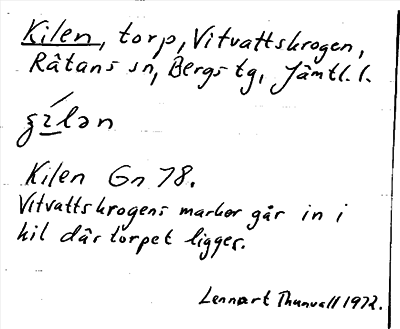 Kilen, torp, Vitvattskrogen,
Råtans sn, Bergs tg, Jämtl. l.
ʒílən
Kilen Gn 78.
Vitvattskrogens marker går in i
kil där torpet ligger.
Lennart Thunvall 1972.